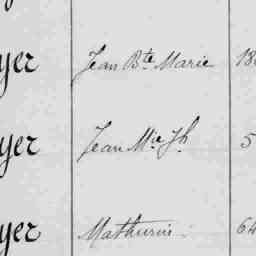 yer Jean Bte Marie 18
yer Jean Mie Jh 5
yer Mathurin 64